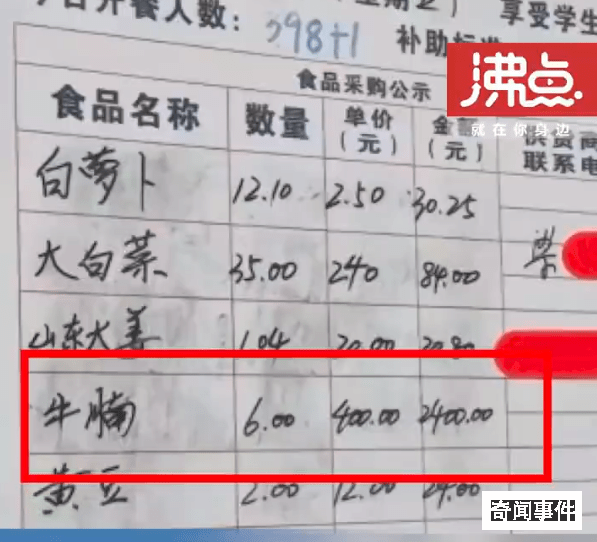 开餐人数: 398+1 补助标准
享受学生
食品采购公示
沸点
就在你身边
食品名称 数量 单价(元) 金额(元) 供货商联系电
白萝卜 12.10 2.50 30.25
大白菜 35.00 240 84.00
山东大姜 1.04 20.00 20.80
牛腩 6.00 400.00 2400.00
黄豆 2.00 12.00 24.00
奇闻事件